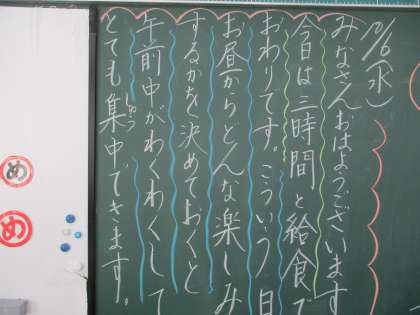 10/6(水)
みなさんおはようございます
今日は三時間と給食で
おわりです。こういう日
お昼からどんな楽しみ
するかを決めておくと
午前中がわくわくして
とても集中できます。
しゅう
め
め